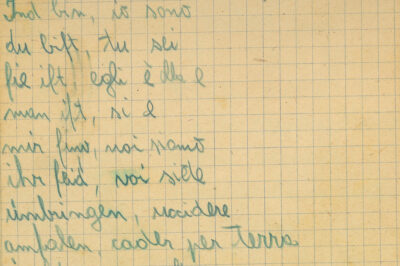 Ind bin, io sono
du bist, tu sei
sie ist, egli è ella e
man ist, si e
mir sind, noi siamo
ihr seid, voi siete
umbringen, uccidere
cader per terra